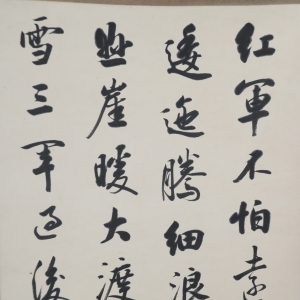 红軍不怕遠
逶迤騰細浪
崖暖大渡
雪三軍过後